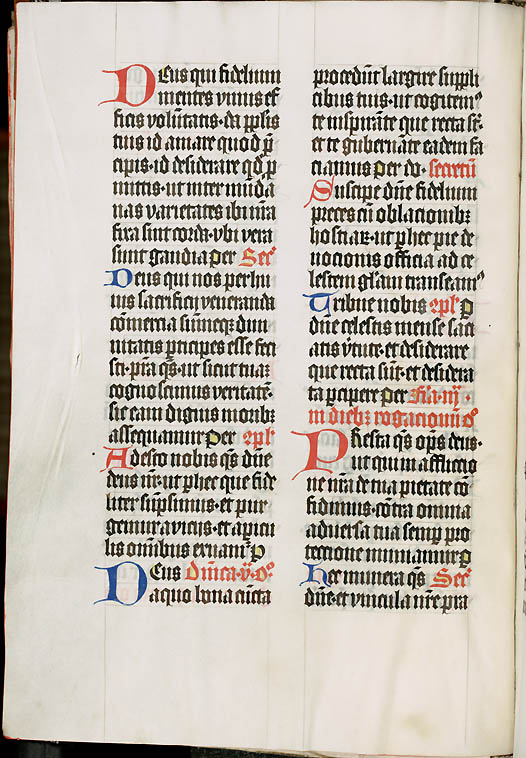 Deus qui fidelium
mentes vnius ef
ficis volūtatis· da pp̄lis
tuis id amare quod p̄
cipis· id desiderare qd̄ p̄
mittis· ut inter mūda
nas varietates ibi nr̄a
fixa sint corda· vbi vera
sunt gaudia per Sec̄
Deus qui nos per hui
ius sacrificij veneranda
cōmercia sūmeqꝫ diui
nitatis ꝑticipes esse feci
sti· pr̄a qs̄· ut sicut tuā
cognoscimus veritatē·
sic eam dignis moribꝫ
assequamur per cp̄l
Adesto nobis qs̄ dn̄e
deus nr̄· ut ꝑ hec que fide
liter sūpsimus· et pur
gemur a vicijs· et a ꝑicu
lis om̄ibus eruam̄ p
Deus Dn̄ica· v· o
a quo bona cūcta
procedūt largire suppli
cibus tuis· ut cogitemꝰ
te inspirāte que recta st̄·
et te gubernāte eadem fa
ciamus per do· secretū
Suscipe dn̄e fidelium
preces cū oblacionibꝫ
hostiaꝝ· ut ꝑ hec pie de
uocionis officia ad ce
lestem gl̄am transeamꝰ
Tribue nobis cp̄l p
dn̄e celestis mense saci
atis v̄tute· et desiderare
que recta sūt· et desidera
ta ꝑcipere per Fīa· ij·
in diebꝫ rogacionū oꝰ
Presta qs̄ op̄s deus·
ut qui in afflictio
ne nr̄a de tua pietate cō
fidimus· cōtra omnia
aduersa tua semꝑ pro
tectione muniamur p
Hec munera qs̄ Sec̄
dn̄e· et vincula nr̄e pra